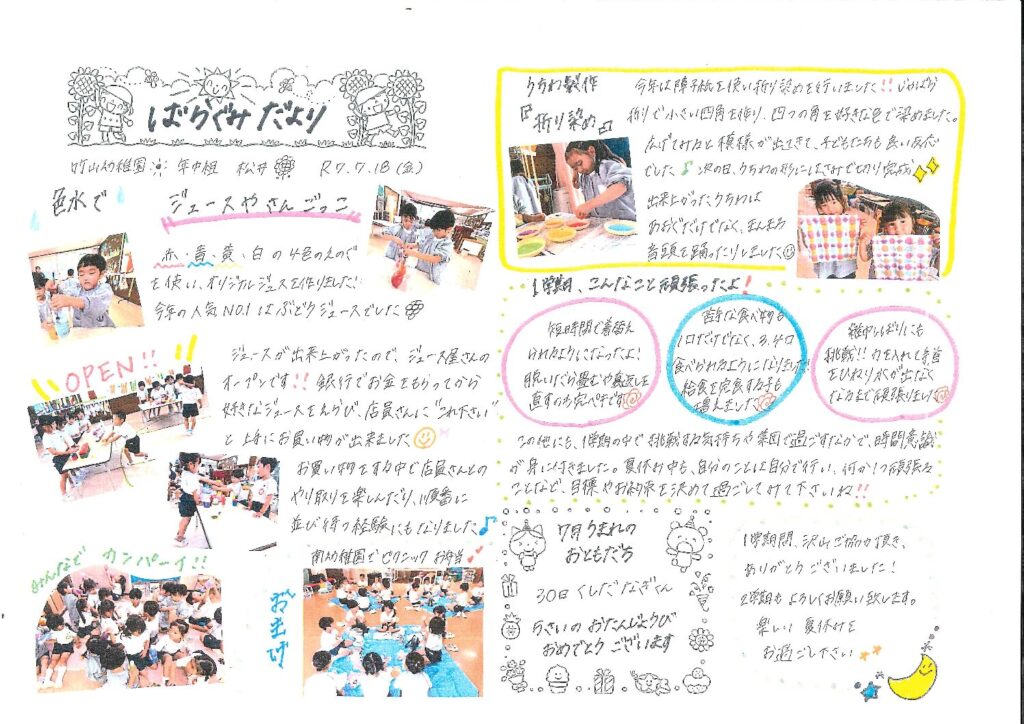 ばらぐみ だより
竹山幼稚園 年中組 松井 R7.7.18(金)
色水で ジュースやさんごっこ
赤・青・黄・白の4色のえのぐ
を使い、オリジナルジュースを作りました!!
今年の人気NO.1はぶどうジュースでした
OPEN!!
ジュースが出来上がったので、ジュース屋さんの
オープンです!! 銀行でお金をもらってから
好きなジュースをえらび、店員さんに"これ下さい"
と上手にお買い物が出来ました
お買い物をする中で店員さんとの
やり取りを楽しんだり、順番に
並び待つ経験にもなりました♪
みんなで カンパーイ!!
お土げ
南幼稚園でピクニック お弁当
うちわ製作
『折り染め』
今年は障子紙を使い折り染めを行いました!! じゃばら
折りで小さい四角を作り、四つの角を好きな色で染めました。
広げてみると模様が出てきて、子どもたちも良い反応
でした♪ 次の日、うちわの形にはさみで切り完成
出来上がったうちわは
あおぐだけでなく、まんまる
音頭を踊ったりしました
1学期、こんなこと頑張ったよ!
短時間で着替え
られるようになったよ!
脱いだら畳むや裏返しを
直すのも完ペキです
苦手な食べ物も
1口だけでなく、3、4口
食べられるようになりました!
給食を完食する子も
増えました
雑巾しぼりにも
挑戦!! 力を入れて手首
をひねり水が出なく
なるまで頑張りました
この他にも、1学期の中で挑戦する気持ちや集団で過ごすなかで、時間意識
が身に付きました。夏休み中も、自分のことは自分で行い、何か1つ頑張る
ことなど、目標やお約束を決めて過ごしてみて下さいね!!
7月うまれの
おともだち
30日 くしだ なぎくん
5さいの おたんじょうび
おめでとう ございます
1学期間、沢山ご協力頂き、
ありがとう ございました!
2学期も よろしくお願い致します。
楽しい夏休みを
お過ごし下さい